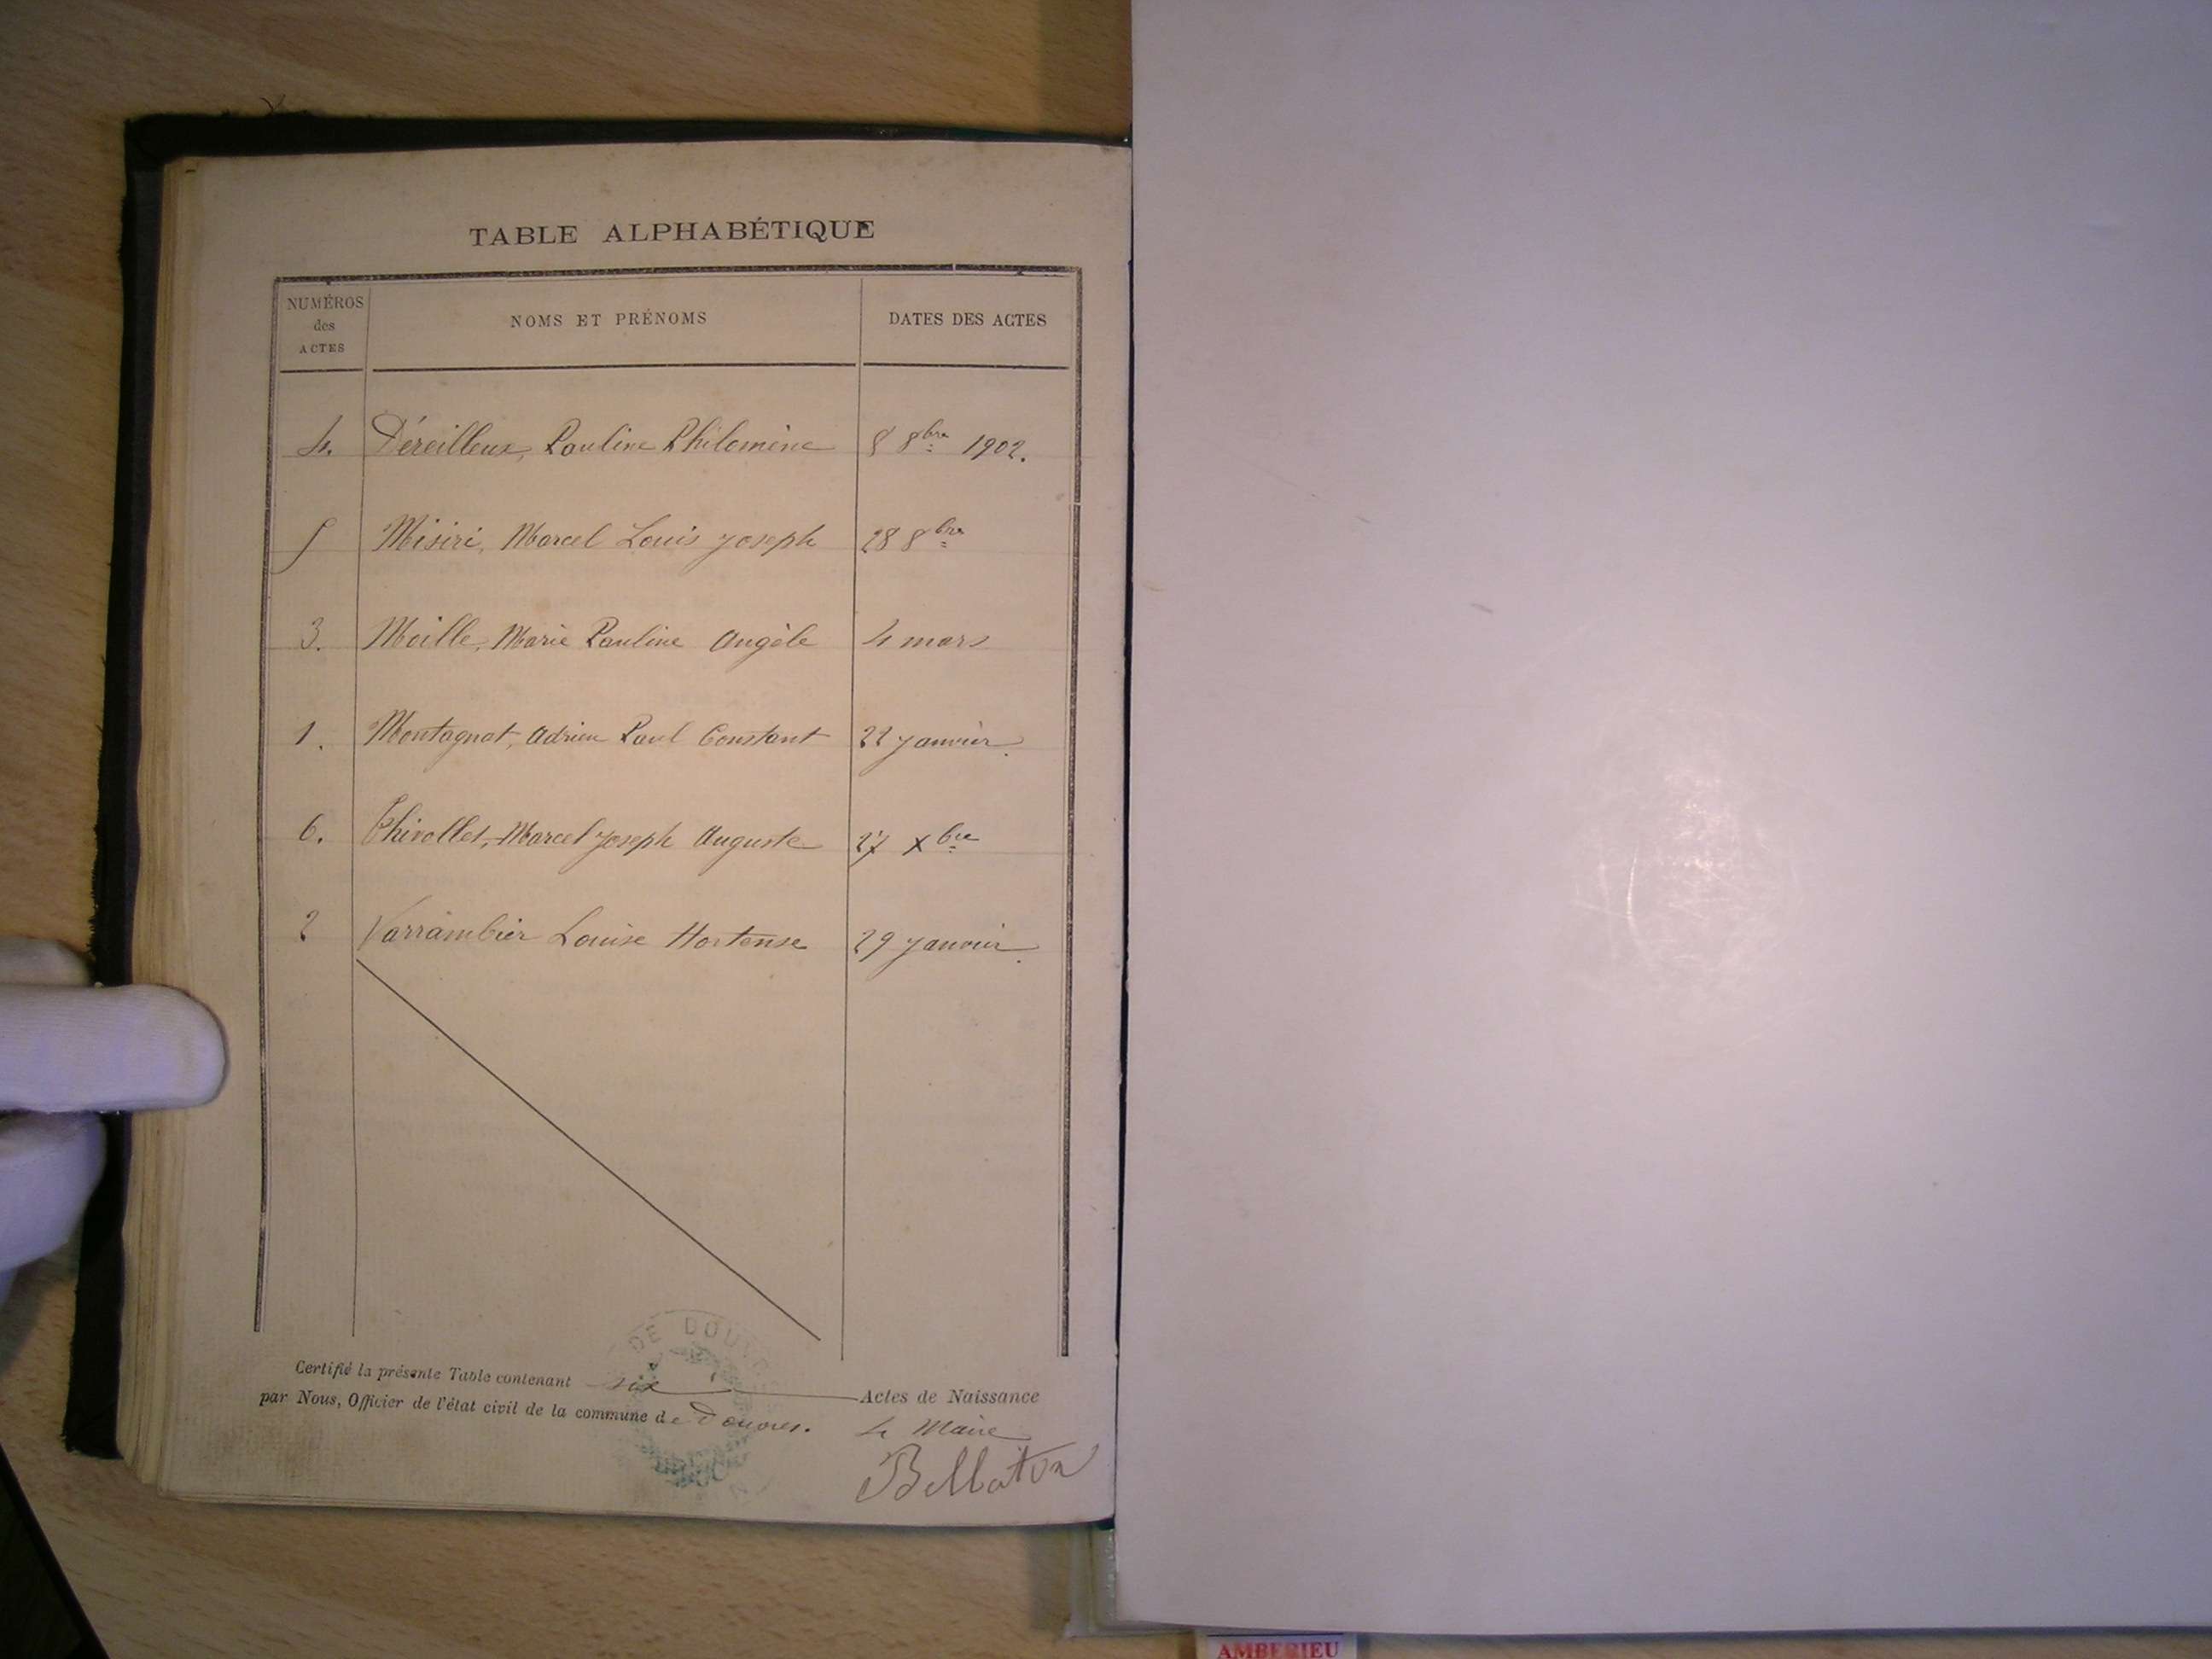 TABLE ALPHABÉTIQUE
NUMÉROS
des
ACTES
NOMS ET PRÉNOMS
DATES DES ACTES
4. Déreilleux, Pauline Philomène 8 8bre 1902.
5 Misiri, Marcel Louis Joseph 28 8bre
3. Moille, Marie Pauline Angèle 4 mars
1. Montagnat, Adrien Paul Constant 22 Janvier.
6. Thivollet, Marcel Joseph Auguste 27 Xbre
2 Varrambier Louise Hortense 29 Janvier.
Certifié la présente Table contenant six Actes de Naissance
par Nous, Officier de l'état civil de la commune de Douvres.
Le Maire
Bellaton
DE DOUVRES
AMBERIEU